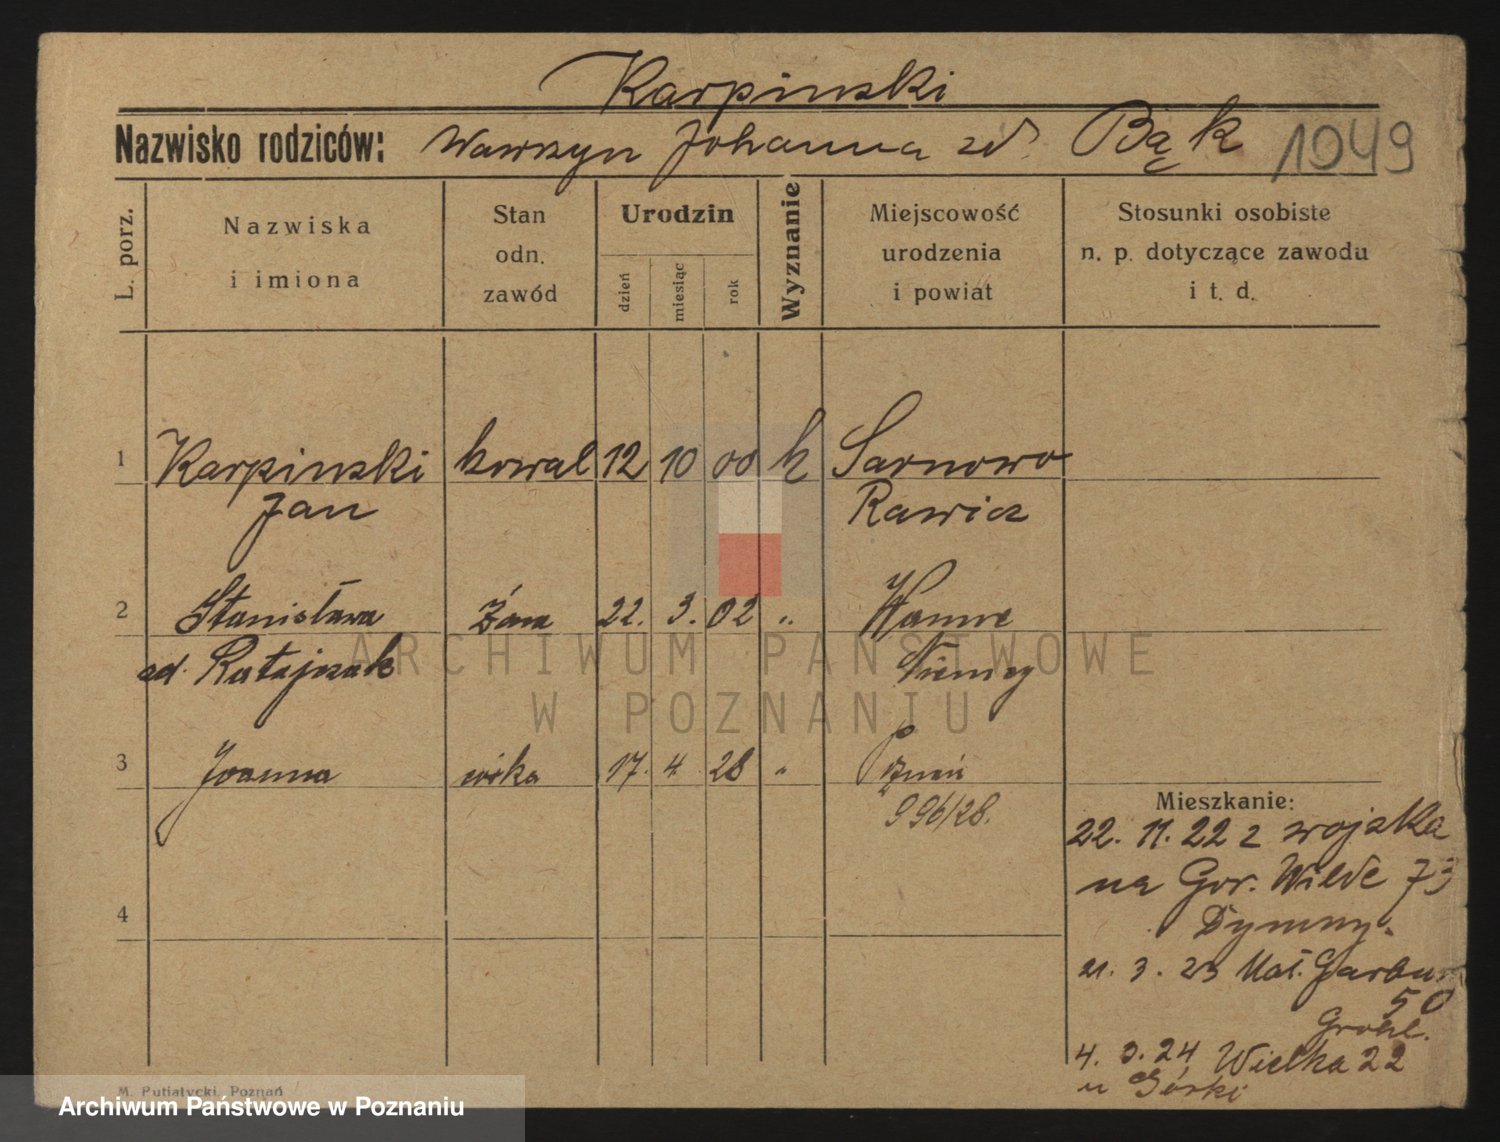 Karpinski
Nazwisko rodziców: Wawrzyn Johanna zd. Bąk 1049
L. porz.
Nazwiska i imiona
Stan odn. zawód
Urodzin
dzień
miesiąc
rok
Wyznanie
Miejscowość urodzenia i powiat
Stosunki osobiste n. p. dotyczące zawodu i t. d.
1 Karpinski kowal 12 10 00 k Sarnowo
Jan Rawicz
2 Stanisława żona 22. 3. 02 " Wanne
zd. Ratajczak Niemcy
3 Joanna córka 17. 4. 28 " Pznań
996/28.
Mieszkanie:
22. 11. 22 z wojska
na Gór. Wilde 73
Dymny.
21. 3. 23 Mał. Garbary
50
Grohl.
4. 3. 24 Wielka 22
u Górki
4
M. Putiatycki, Poznań
ARCHIWUM PAŃSTWOWE
W POZNANIU
Archiwum Państwowe w Poznaniu